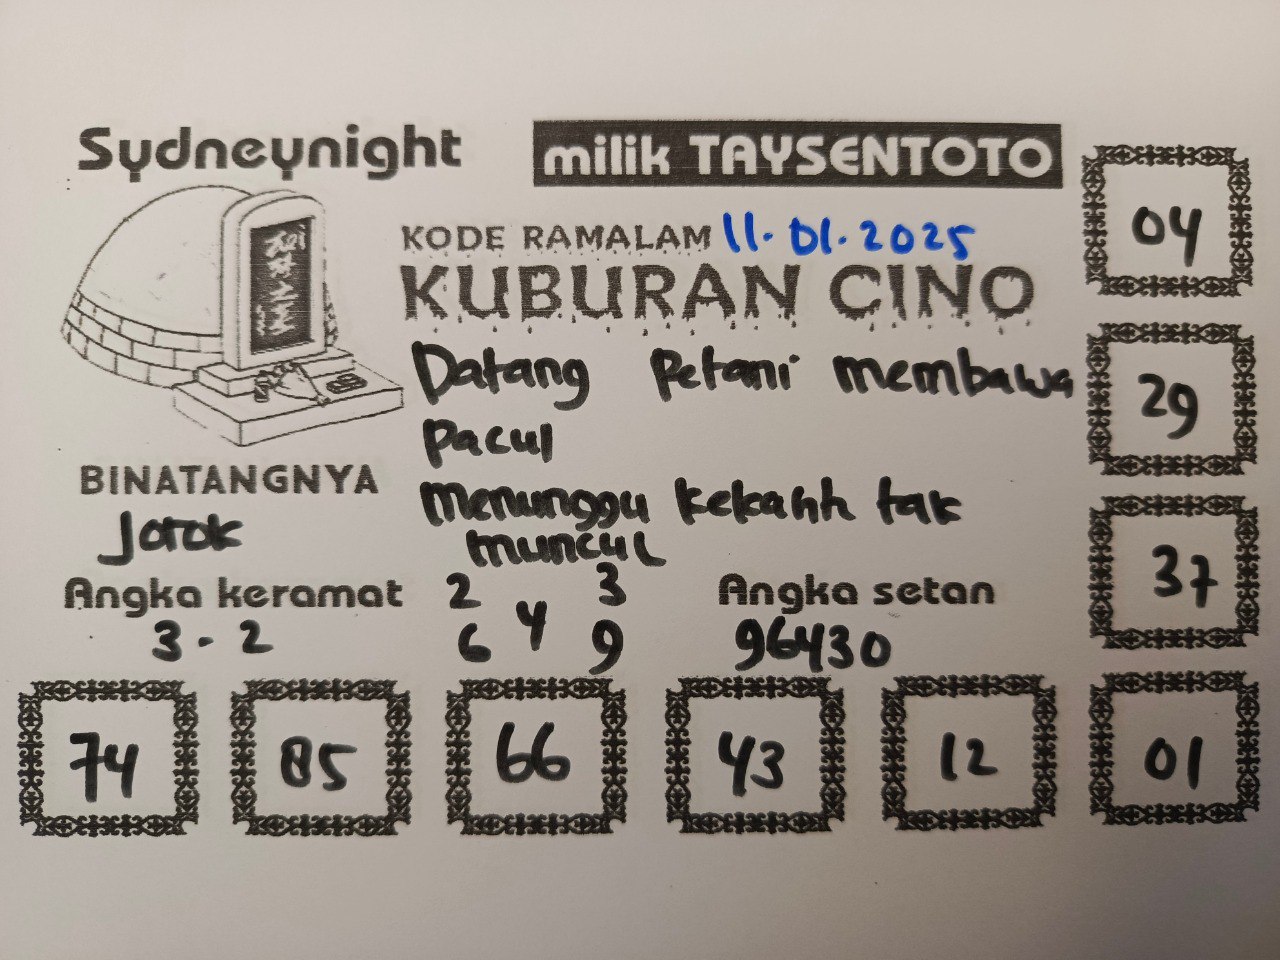 Sydneynight
milik TAYSENTOTO
KODE RAMALAM 11.01.2025
KUBURAN CINO
Datang Petani membawa
Pacul
menunggu kekasih tak
muncul
BINATANGNYA
Angka keramat
3 - 2
2 3
4
6 9
Angka setan
96430
04
29
37
74
85
66
43
12
01